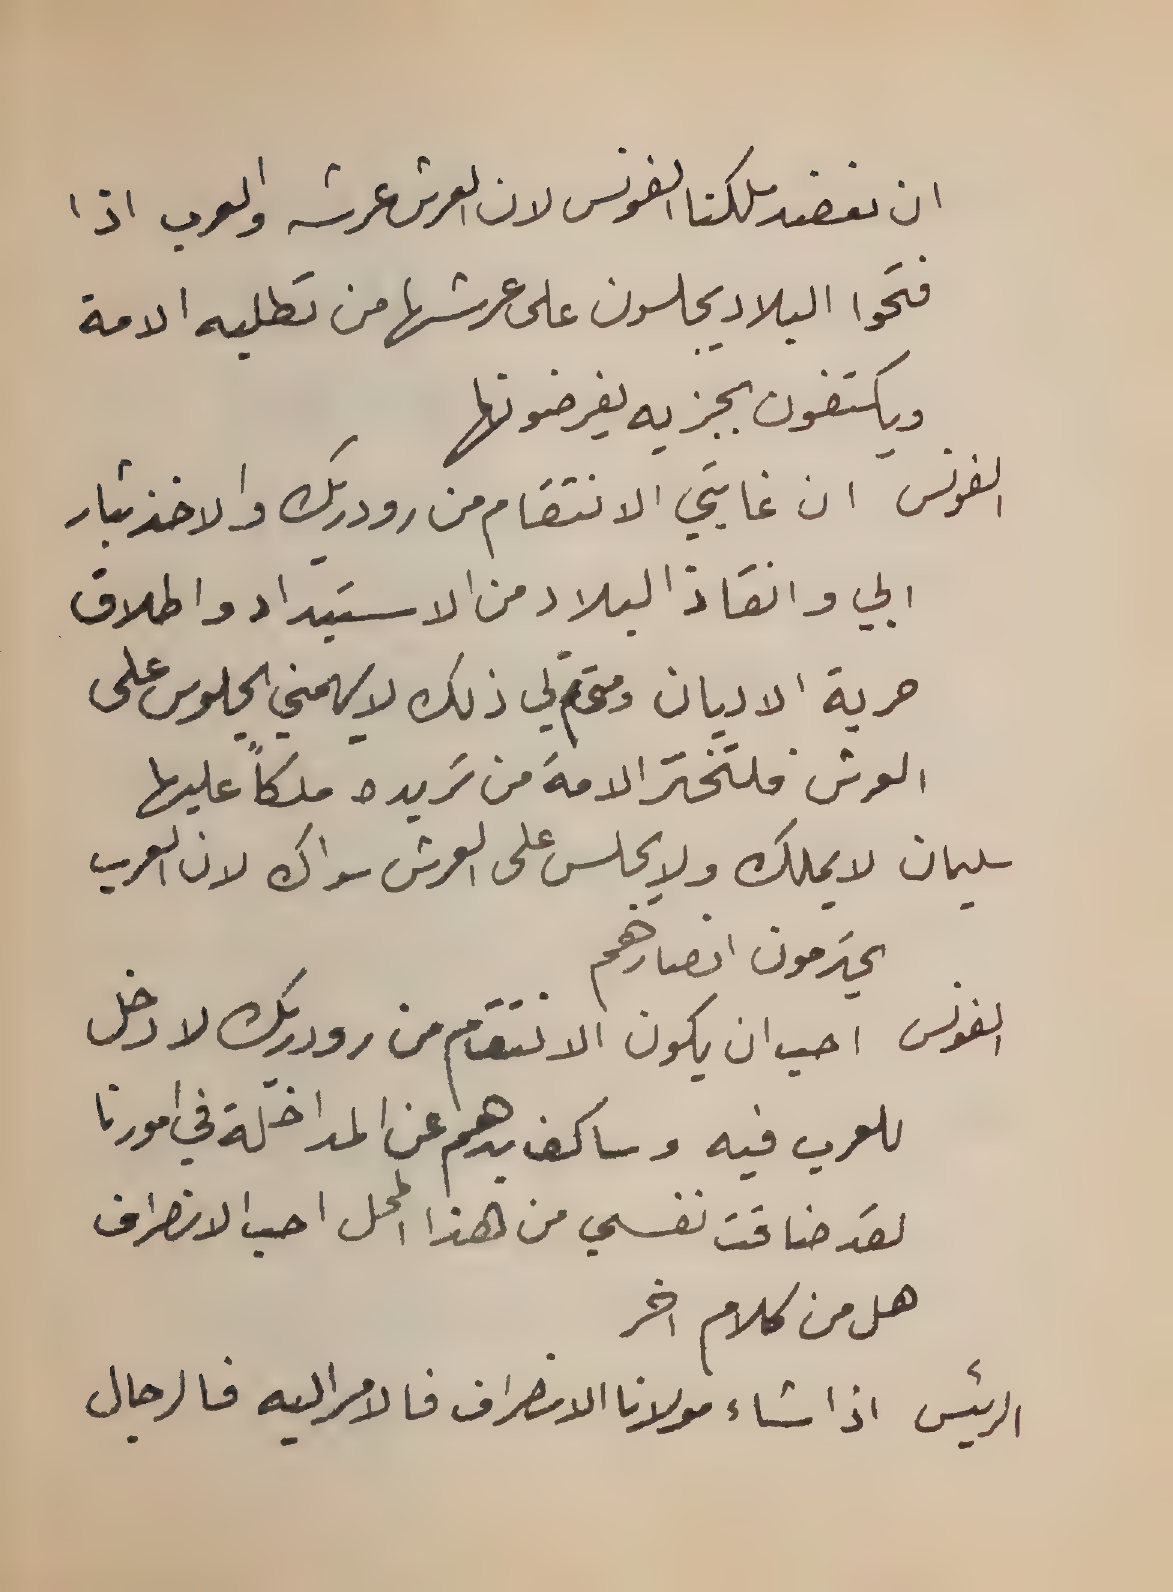 ان نعضد ملكنا الفونس لان العرش عرشه والعرب اذا
فتحوا البلاد يجلسون على عرشها من تطلبه الامة
ويكتفون بجزيه يفرضونها
الفونس ان غايتي الانتقام من رودريك والاخذ بثار
ابي وانقاذ البلاد من الاستبداد واطلاق
حرية الاديان ومتى تم لي ذلك لا يهمني الجلوس على
العرش فلتختر الامة من تريده ملكاً عليها
سليمان لا يملك ولا يجلس على العرش سواك لان العرب
يحترمون انصارهم
الفونس احب ان يكون الانتقام من رودريك لا دخل
للعرب فيه وساكف يدهم عن المداخلة في امورنا
لقد ضاقت نفسي من هذا المحل احب الانصراف
هل من كلام اخر
الرئيس اذا شاء مولانا الانصراف فالامر اليه فالرجال